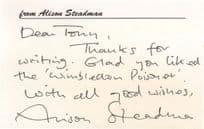 from Alison Steadman
Dear Tony,
Thanks for
writing. Glad you liked
the 'Wimbledon Poisoner'.
With all good wishes,
Alison
Steadman